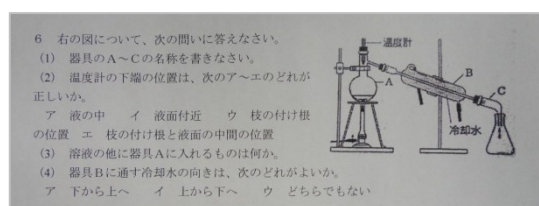 6 右の図について、次の問いに答えなさい。
(1) 器具のA〜Cの名称を書きなさい。
(2) 温度計の下端の位置は、次のア〜エのどれが
正しいか。
ア 液の中 イ 液面付近 ウ 枝の付け根
の位置 エ 枝の付け根と液面の中間の位置
(3) 溶液の他に器具Aに入れるものは何か。
(4) 器具Bに通す冷却水の向きは、次のどれがよいか。
ア 下から上へ イ 上から下へ ウ どちらでもない
温度計
A
B
C
冷却水